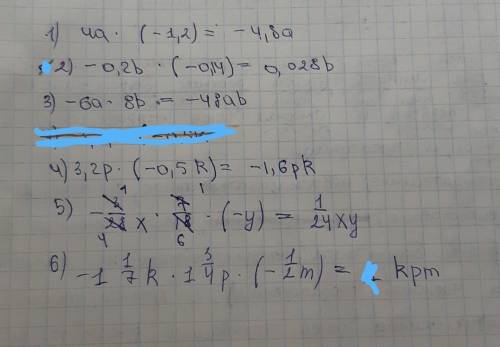 1) 4a · (-1,2) = -4,8a
2) -0,2b · (-0,14) = 0,028b
3) -6a · 8b = -48ab
4) 3,2p · (-0,5k) = -1,6pk
5) - x · 7/18 · (-y) = 1/24 xy
6) -1 1/7 k · 1 3/4 p · (-1/2 m) = kpm